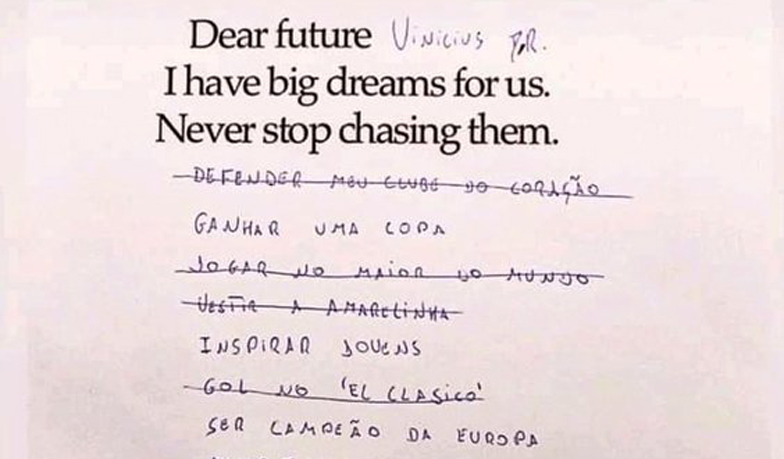 Dear future Vinicius JR.
I have big dreams for us.
Never stop chasing them.
DEFENDER MEU CLUBE DO CORAÇÃO
GANHAR UMA COPA
JOGAR NO MAIOR DO MUNDO
VESTIR A AMARELINHA
INSPIRAR JOVENS
GOL NO 'EL CLASICO'
SER CAMPEÃO DA EUROPA